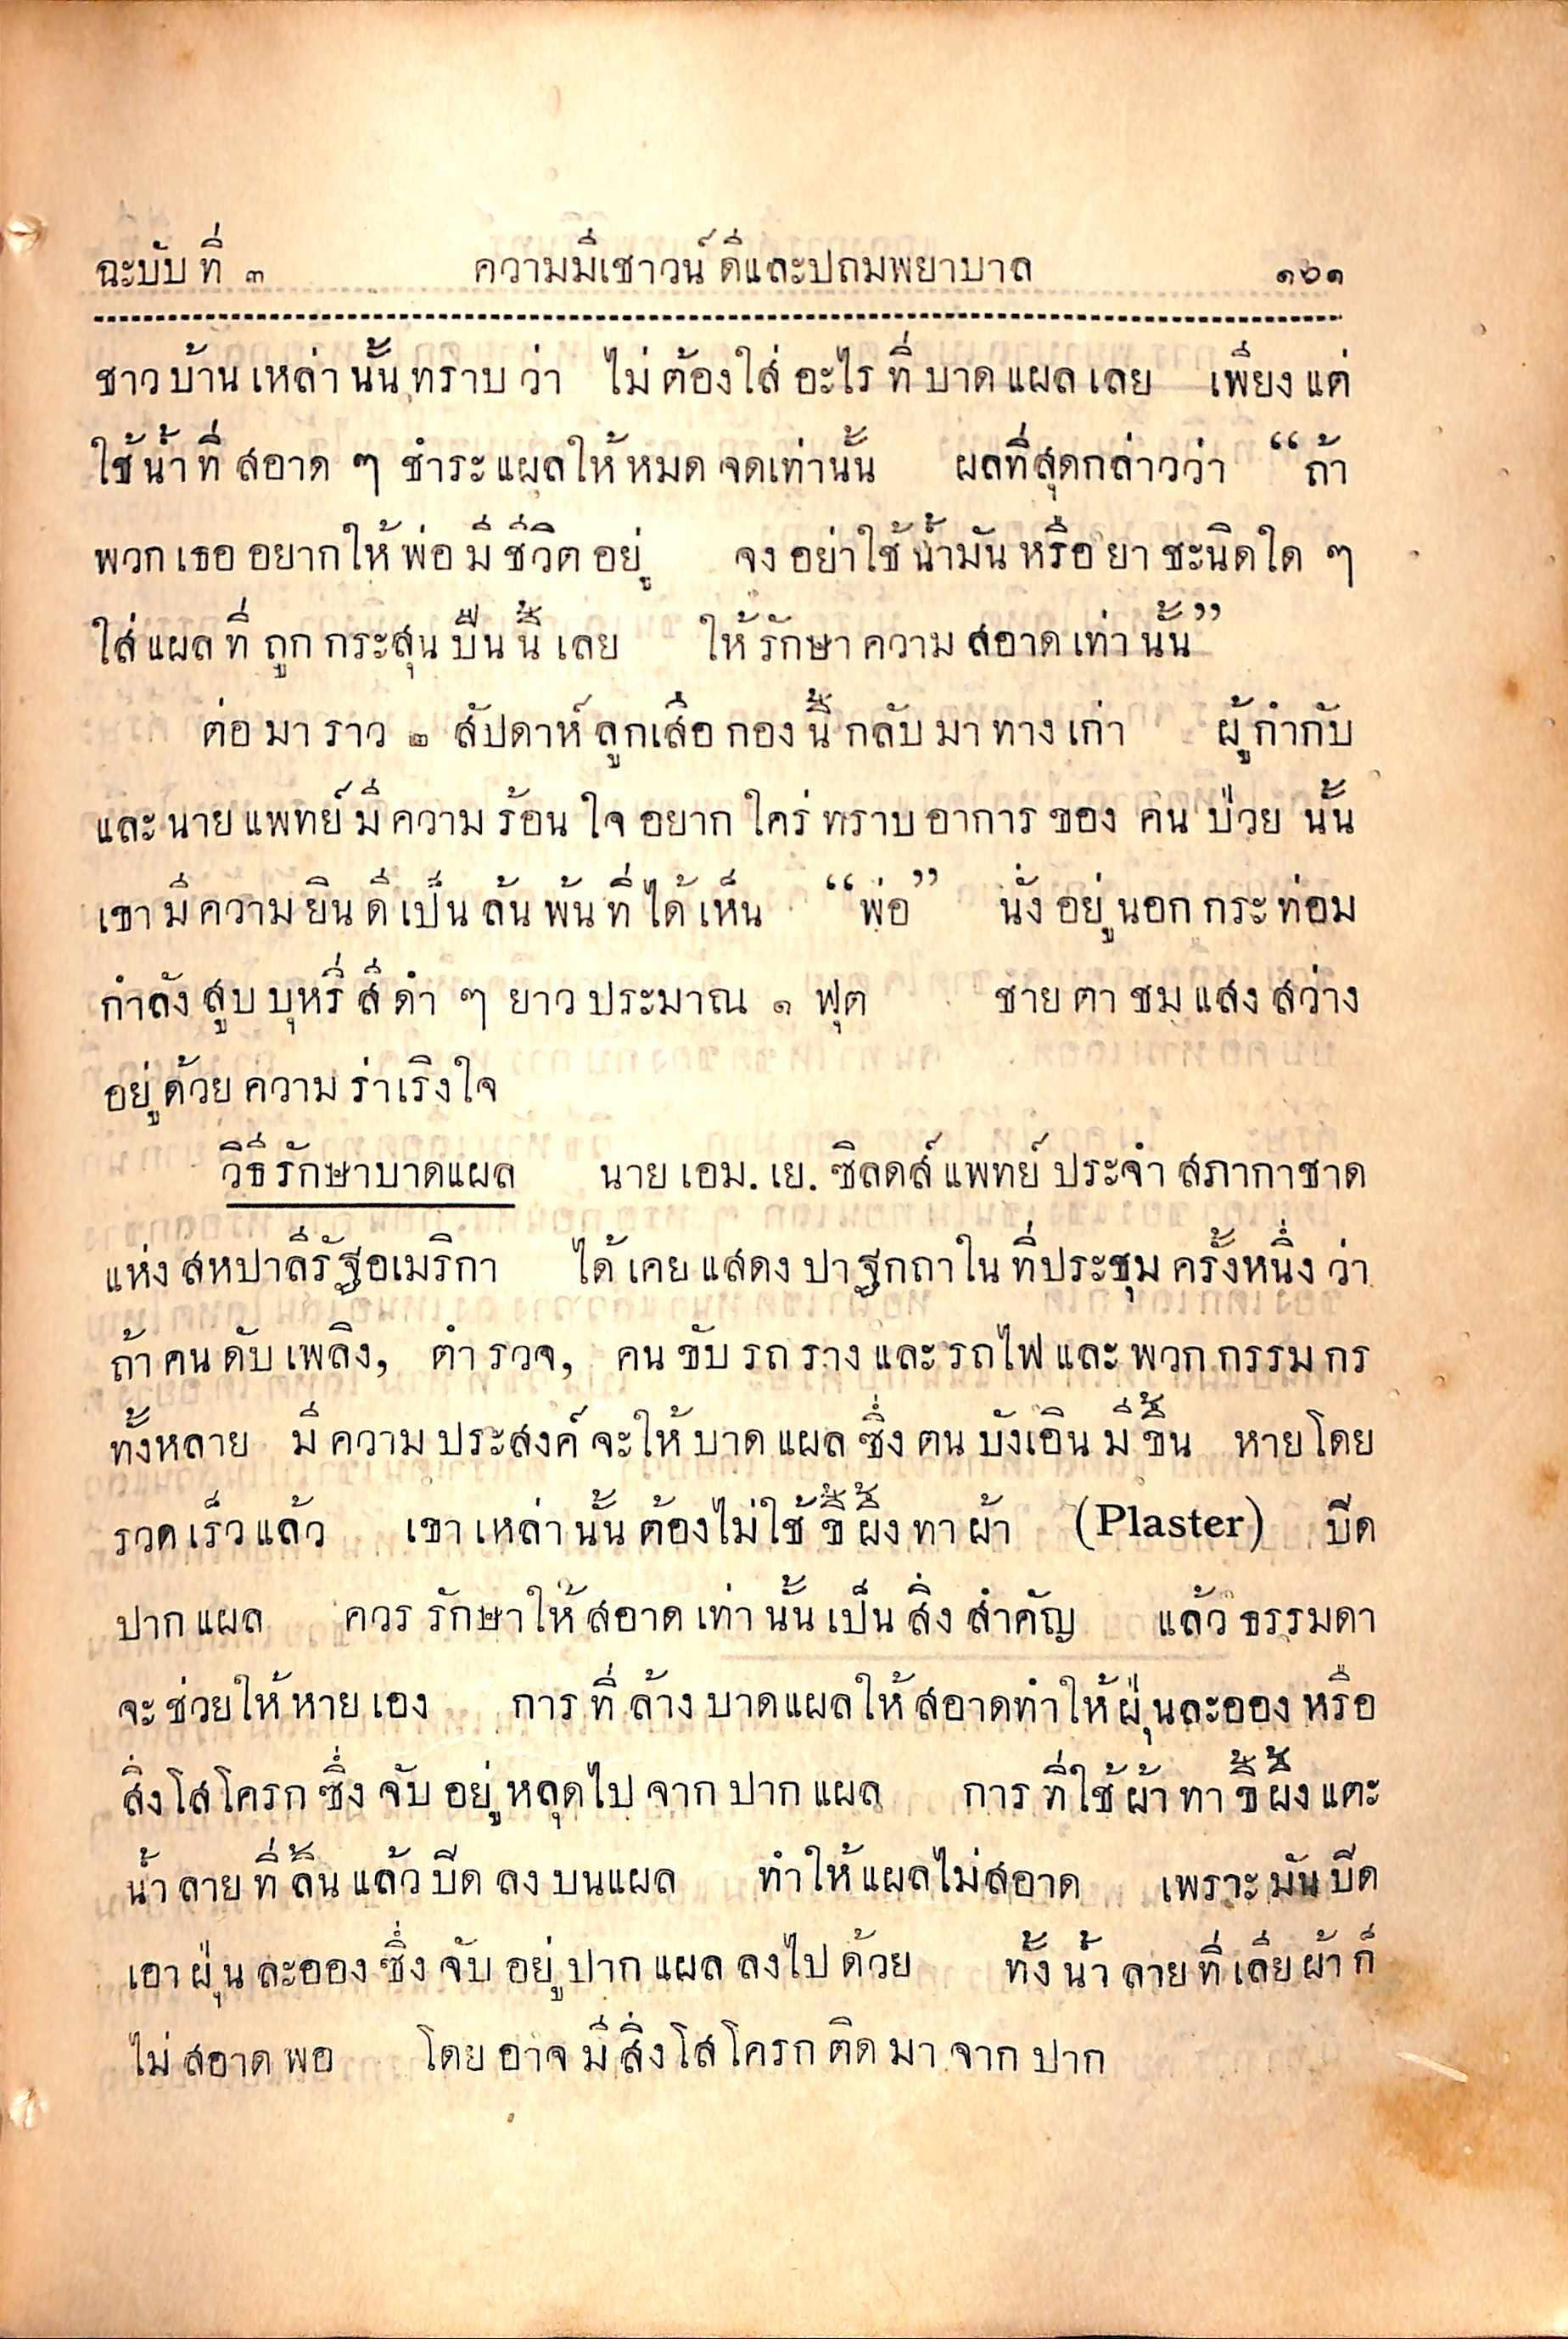 ฉะบับที่ ๓ ความมีเชาวน์ดีและปถมพยาบาล ๑๖๑
ชาวบ้านเหล่านั้นทราบว่า ไม่ต้องใส่อะไรที่บาดแผลเลย เพียงแต่
ใช้น้ำที่สอาด ๆ ชำระแผลให้หมดจดเท่านั้น ผลที่สุดกล่าวว่า “ถ้า
พวกเธออยากให้พ่อมีชีวิตอยู่ จงอย่าใช้น้ำมันหรือยาชะนิดใด ๆ
ใส่แผลที่ถูกกระสุนปืนนี้เลย ให้รักษาความสอาดเท่านั้น”
ต่อมาราว ๒ สัปดาห์ลูกเสือกองนี้กลับมาทางเก่า ผู้กำกับ
และนายแพทย์มีความร้อนใจอยากใคร่ทราบอาการของคนป่วยนั้น
เขามีความยินดีเป็นล้นพ้นที่ได้เห็น “พ่อ” นั่งอยู่นอกกระท่อม
กำลังสูบบุหรี่สีดำ ๆ ยาวประมาณ ๑ ฟุต ชายตาชมแสงสว่าง
อยู่ด้วยความร่าเริงใจ
วิธีรักษาบาดแผล นายเอม. เย. ซิลดส์แพทย์ประจำสภากาชาด
แห่งสหปาลีรัฐอเมริกา ได้เคยแสดงปาฐกถาในที่ประชุมครั้งหนึ่งว่า
ถ้าคนดับเพลิง, ตำรวจ, คนขับรถรางและรถไฟและพวกกรรมกร
ทั้งหลาย มีความประสงค์จะให้บาดแผลซึ่งตนบังเอินมีขึ้น หายโดย
รวดเร็วแล้ว เขาเหล่านั้นต้องไม่ใช้ขี้ผึ้งทาผ้า (Plaster) ปีด
ปากแผล ควรรักษาให้สอาดเท่านั้นเป็นสิ่งสำคัญ แล้วธรรมดา
จะช่วยให้หายเอง การที่ล้างบาดแผลให้สอาดทำให้ฝุ่นละอองหรือ
สิ่งโสโครกซึ่งจับอยู่หลุดไปจากปากแผล การที่ใช้ผ้าทาขี้ผึ้งแตะ
น้ำลายที่ลิ้นแล้วปีดลงบนแผล ทำให้แผลไม่สอาด เพราะมันปีด
เอาฝุ่นละอองซึ่งจับอยู่ปากแผลลงไปด้วย ทั้งน้ำลายที่เลียผ้าก็
ไม่สอาดพอ โดยอาจมีสิ่งโสโครกติดมาจากปาก